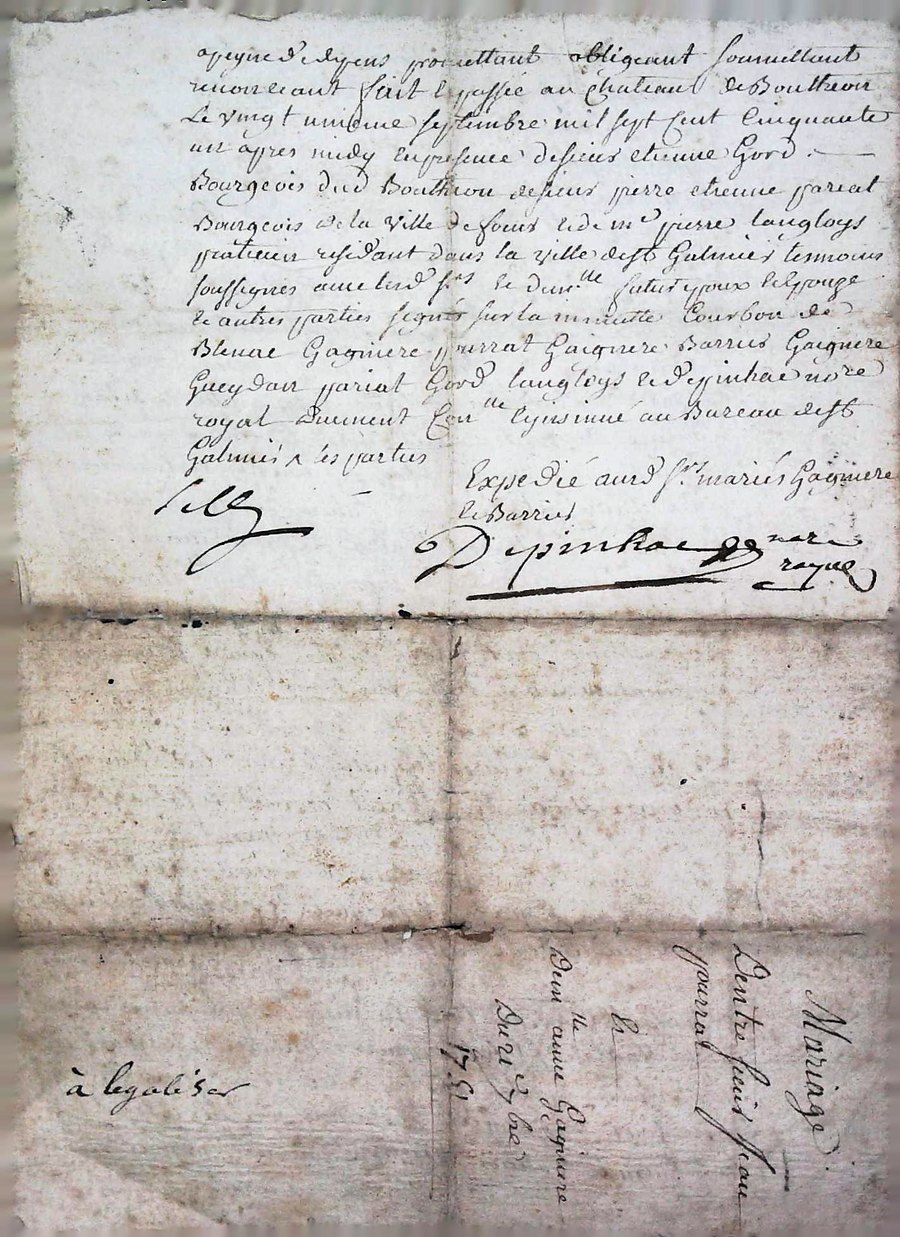 a peyne de depens promettant obligeant soumettant
renonceant fait et passée au chateau de Boutheon
Le vingt unieme septembre mil sept cent cinquante
un apres midy en presence de sieurs etienne Gord
Bourgeois dud Bouthion de sieur pierre etienne pariat
Bourgeois de la ville de feurs et de me pierre langloys
praticien residant dans la ville de st Galmier tesmoins
soussignes avec lesd srs et demlle futur epoux et epouze
et autres parties signés sur la minutte Courbon de
Blenac Gagniere pourrat Gaignere Barrier Gaignere
Gueydan pariat Gord langloys et depinhac nore
royal duement Conlle et insinué au Bureau de st
Galmier les parties
Expedié aux d srs mariés Gagniere
et Barrier
Depinhac nore
royal
Mariage
Dentre sieur Jean
pourrat
Et
Demlle anne Gagniere
Du 21 7bre
1751
à legaliser